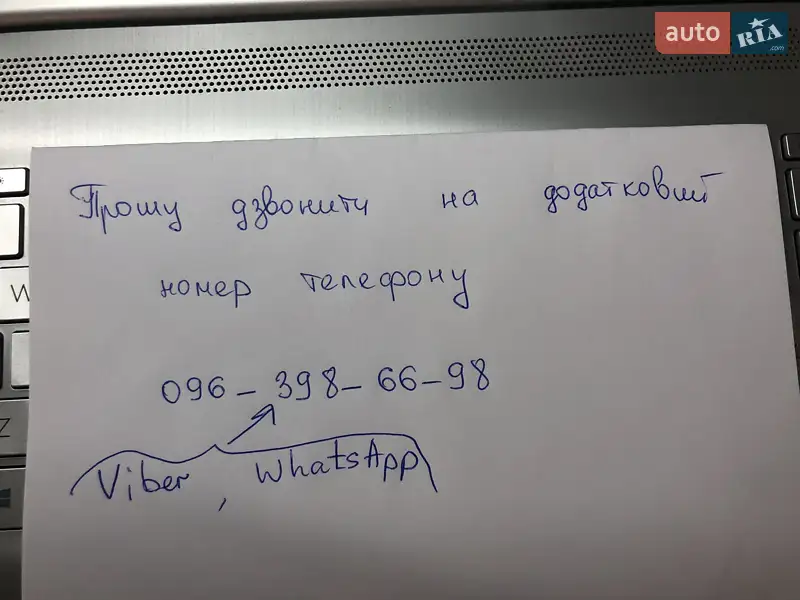 auto RIA .com
Прошу дзвонити на додатковий
номер телефону
096-398-66-98
Viber, WhatsApp
W
Z